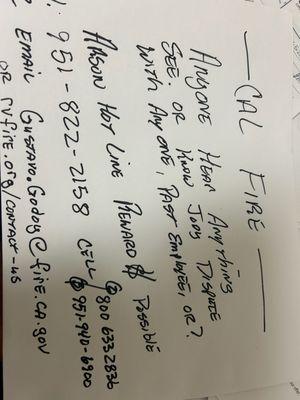 CAL FIRE
ANYONE HEAR ANYTHING
SEE. OR KNOW JODY DISPUTE
WITH ANYONE, PAST EMPLOYEE, OR?
ARSON HOT LINE REWARD $ POSSIBLE
① 800 633 2836
1. 951-822-2158 CELL ② 951-940-6900
2 EMAIL GUSTAVO.GODOY@FIRE.CA.GOV
OR rvfire.org/contact-us